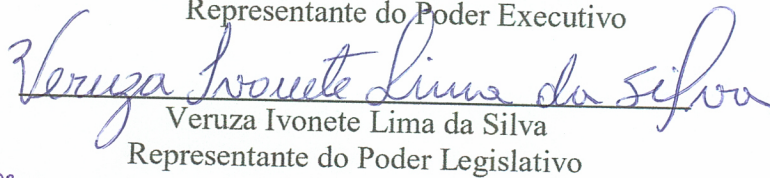 Representante do Poder Executivo
Veruza Ivonete Lima da Silva
Veruza Ivonete Lima da Silva
Representante do Poder Legislativo